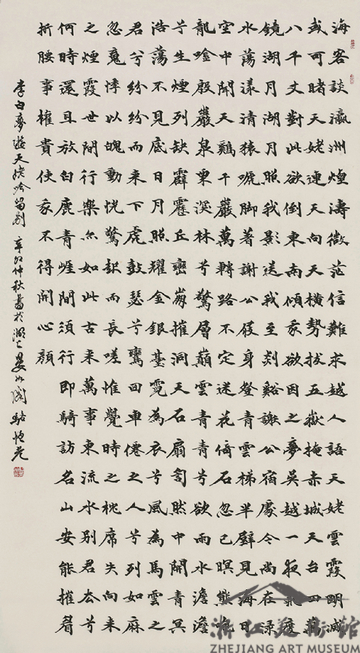 海客談瀛洲煙濤微茫信難求越人語天姥雲霞明滅
或可睹天姥連天向天橫勢拔五嶽掩赤城天台四萬
八千丈對此欲倒東南傾我欲因之夢吳越一夜飛度
鏡湖月湖月照我影送我至剡谿謝公宿處今尚在淥
水蕩漾清猿啼腳著謝公屐身登青雲梯半壁見海日
空中聞天雞千巖萬轉路不定迷花倚石忽已暝熊咆
龍吟殷巖泉栗深林兮驚層巔雲青青兮欲雨水澹澹
兮生煙列缺霹靂丘巒崩摧洞天石扇訇然中開青冥
浩蕩不見底日月照耀金銀臺霓為衣兮風為馬雲之
君兮紛紛而來下虎鼓瑟兮鸞回車僊之人兮列如麻
忽魂悸以魄動怳驚起而長嗟惟覺時之枕席失向來
之煙霞世間行樂亦如此古來萬事東流水別君去兮
何時還且放白鹿青崖間須行即騎訪名山安能摧眉
折腰事權貴使我不得開心顏
李白夢遊天姥吟留別 辛卯仲秋書於湖上晏如閣 駱恒光
浙江美術館
ZHEJIANG ART MUSEUM